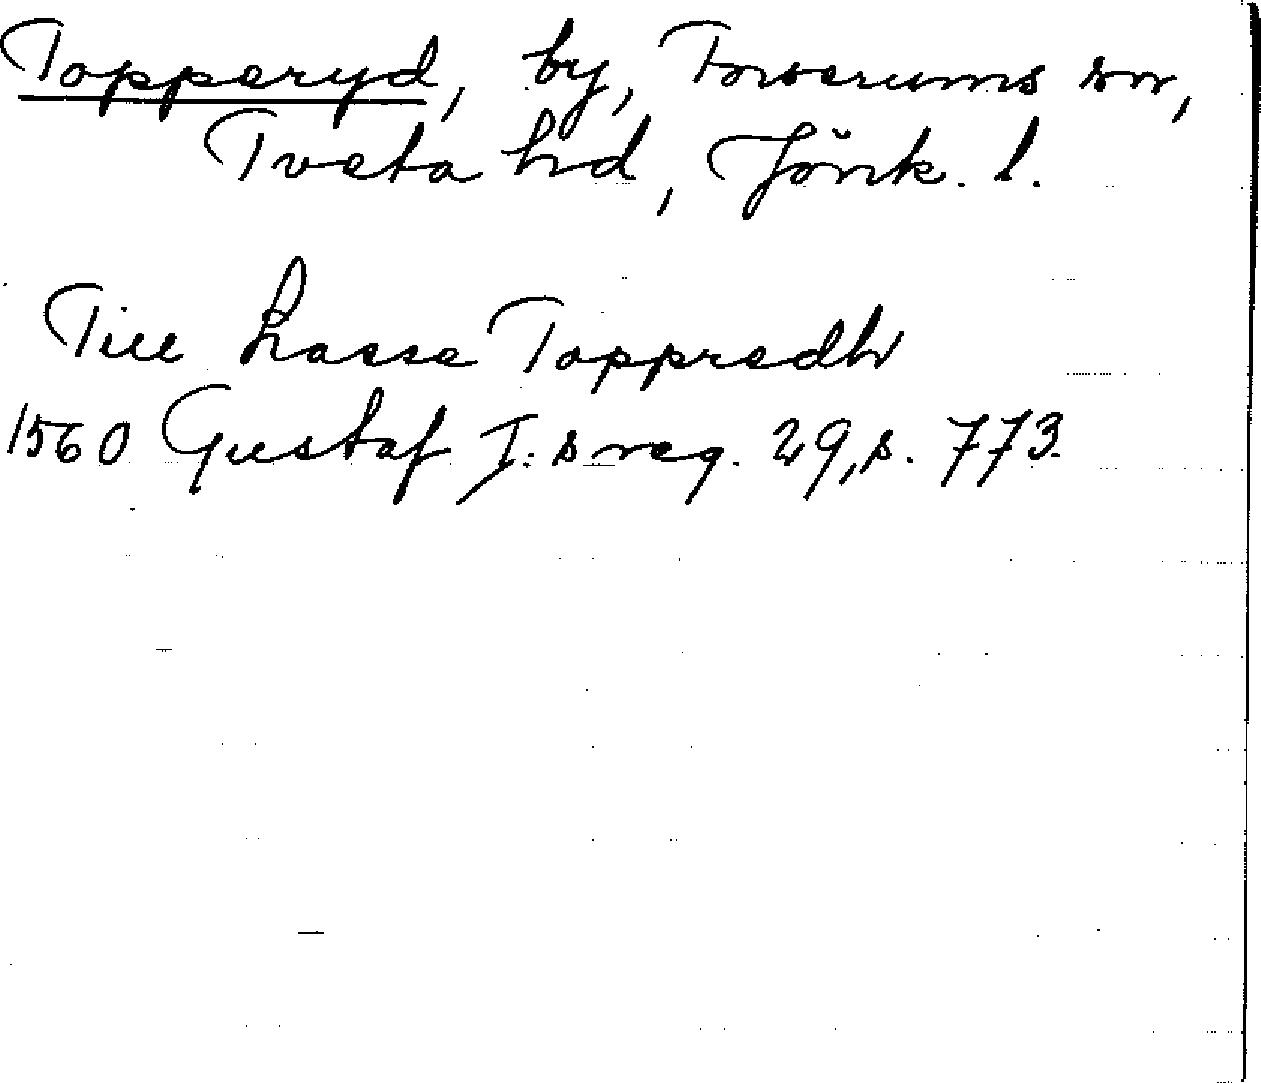 Topperyd, by, Forserums sn,
Tveta hd, Jönk. l.
Till Lasse Toppredh
1560 Gustaf I:s reg. 29, s. 773.